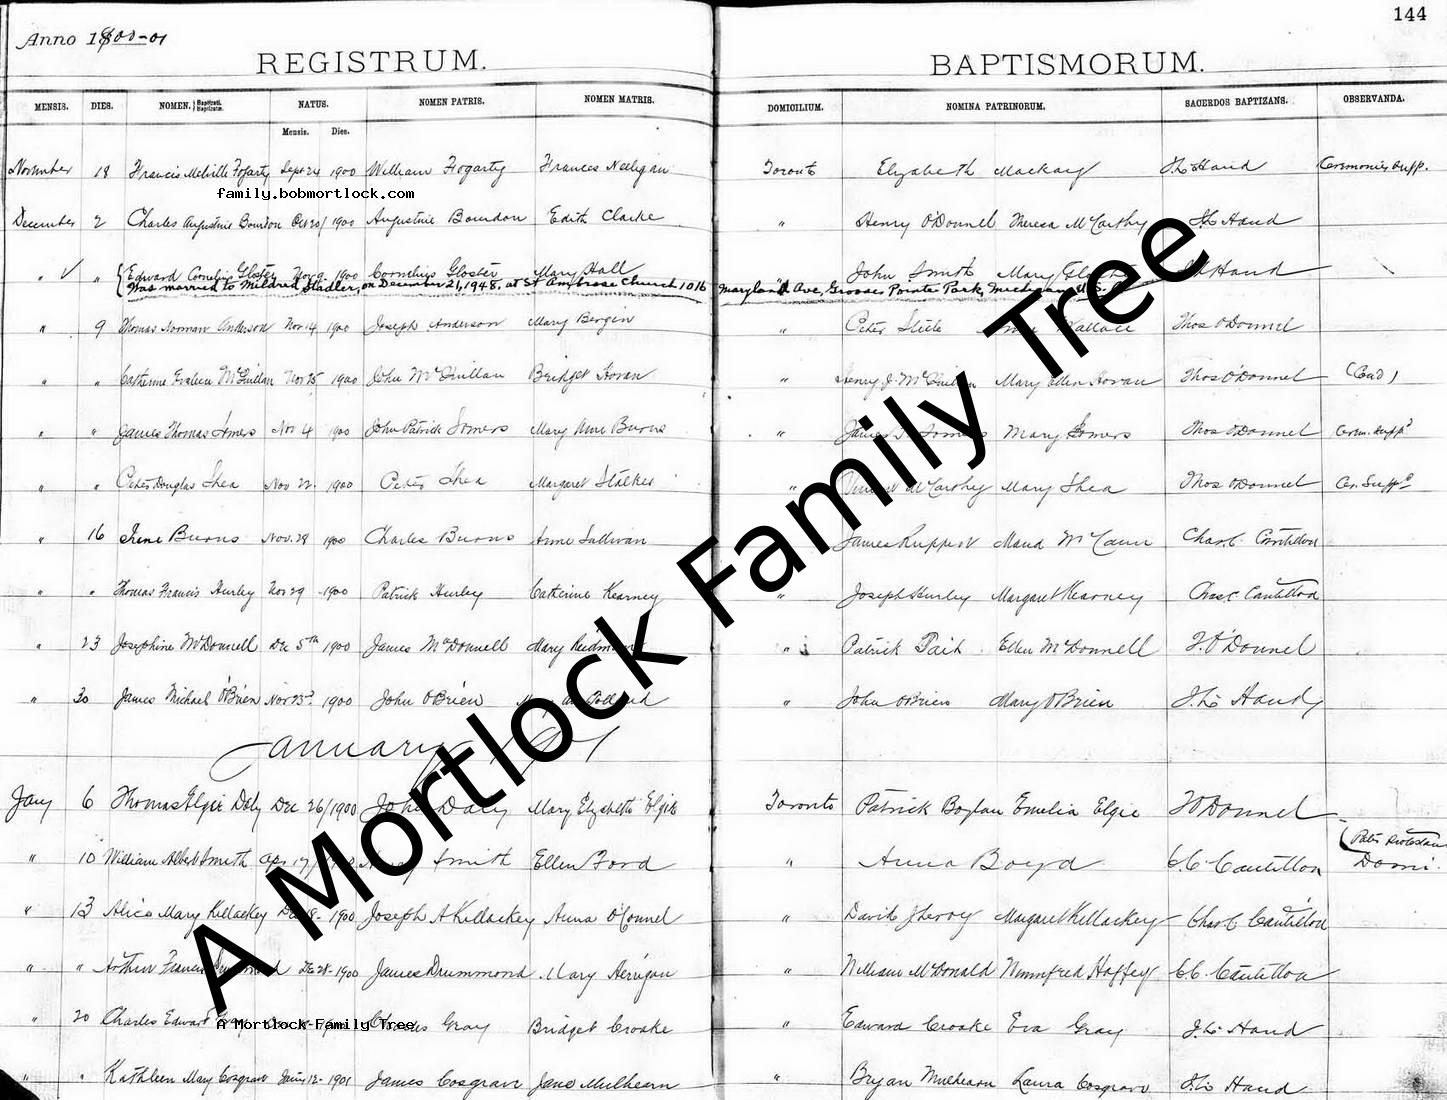 144
Anno 1900-01
REGISTRUM. BAPTISMORUM.
MENSIS. DIES. NOMEN. } Baptizati. Baptizatæ. NATUS. NOMEN PATRIS. NOMEN MATRIS. DOMICILIUM. NOMINA PATRINORUM. SACERDOS BAPTIZANS. OBSERVANDA.
Mensis. Dies.
November 18 Francis Melville Fogarty Sept 24 1900 William Fogarty Frances Neeligan Toronto Elizabeth Mackay J. L. Hand Ceremonies supp.
family.bobmortlock.com
December 2 Charles Augustine Bourdon Oct 20/ 1900 Augustine Bourdon Edith Clarke " Henry O'Donnell Theresa McCarthy J. L. Hand
" ✓ " Edward Cornelius Gloster Nov 9 1900 Cornelius Gloster Mary Hall John Smith Mary Hand
Was married to Mildred Stadler, on December 21, 1948, at St Ambrose Church 1016 Maryland Ave, Grosse Pointe Park, Michigan U.S.
" 9 Thomas Norman Anderson Nov 14 1900 Joseph Anderson Mary Bergin " Peter Steele Wallace Thos O'Donnel
" " Catherine Evaleen McQuillan Nov 25 1900 John McQuillan Bridget Horan " Henry J. McQuillan Mary Ellen Horan Thos O'Donnel
" " James Thomas Somers Nov 4 1900 John Patrick Somers Mary Ann Burns " James Somers Mary Somers Thos O'Donnel Cerem. suppd
" " Peter Douglas Shea Nov 22 1900 Peter Shea Margaret Stalker " Vincent McCarthy Mary Shea Thos O'Donnel Cer. Suppd
" 16 Irene Burns Nov. 28 1900 Charles Burns Anne Sullivan James Ruppert Maud McCann Chas. C. Cantillon
" " Thomas Francis Hurley Nov 29 1900 Patrick Hurley Catherine Kearney " Joseph Hurley Margaret Kearney Chas C. Cantillon
" 23 Josephine McDonnell Dec 5th 1900 James McDonnell Mary Redmond " Patrick Tait Ellen McDonnell T. O'Donnel
" 30 James Michael O'Brien Nov 23d 1900 John O'Brien Mary Ann Pollard " John O'Brien Mary O'Brien J. L. Hand
January
Jany 6 Thomas Elgie Daly Dec 26/1900 John Daly Mary Elizabeth Elgie Toronto Patrick Boylan Emelia Elgie T O'Donnel
" 10 William Albert Smith Apr 17 Smith Ellen Ford " Anna Boyd C. C. Cantillon
" 13 Alice Mary Killackey Dec 18 1900 Joseph A Killackey Anna O'Connel " David Margaret Killackey Chas C. Cantillon
" " Arthur Francis Drummond Dec 28 1900 James Drummond Mary Kerrigan " William McDonald Winnifred Haffey C. C. Cantillon
" 20 Charles Edward Gray Charles Gray Bridget Croake " Edward Croake Eva Gray J. L. Hand
A Mortlock Family Tree
" " Kathleen Mary Cosgrave Jany 12 1901 James Cosgrave Jane Mulhearn " Bryan Mulhearn Laura Cosgrave J. L. Hand
A Mortlock Family Tree